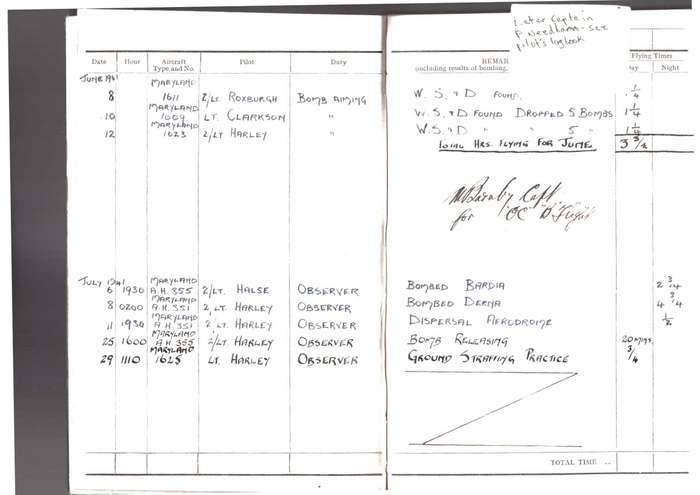 Later Captain
P. Needham - see
pilot's logbook
Date Hour Aircraft Type and No. Pilot Duty REMAR (including results of bombing, Flying Times
ay Night
JUNE 1941 MARYLAND
8 1611 2/LT ROXBURGH BOMB AIMING W. S, & D FOUND. 1/4
MARYLAND
10 1009 LT. CLARKSON " W. S, & D FOUND DROPPED 5 BOMBS 1 1/4
MARYLAND
12 1623 2/LT HARLEY " W. S, & D " " 5 " 1 1/4
TOTAL HRS. FLYING FOR JUNE.
Capt.
for "OC" "D" Flight
JULY 1941 MARYLAND
6 1930 A.H. 355 2/LT. HALSE OBSERVER BOMBED BARDIA 2 3/4
MARYLAND
8 0200 A.H. 351 2/LT. HARLEY OBSERVER BOMBED DERNA 4 3/4
MARYLAND
11 1930 A.H. 351 2/LT. HARLEY OBSERVER DISPERSAL AERODROME 1/2
MARYLAND
25 1600 A.H. 355 2/LT. HARLEY OBSERVER BOMB RELEASING 20 MINS.
MARYLAND
29 1110 1625 LT. HARLEY OBSERVER GROUND STRAFFING PRACTICE 3/4
TOTAL TIME ..